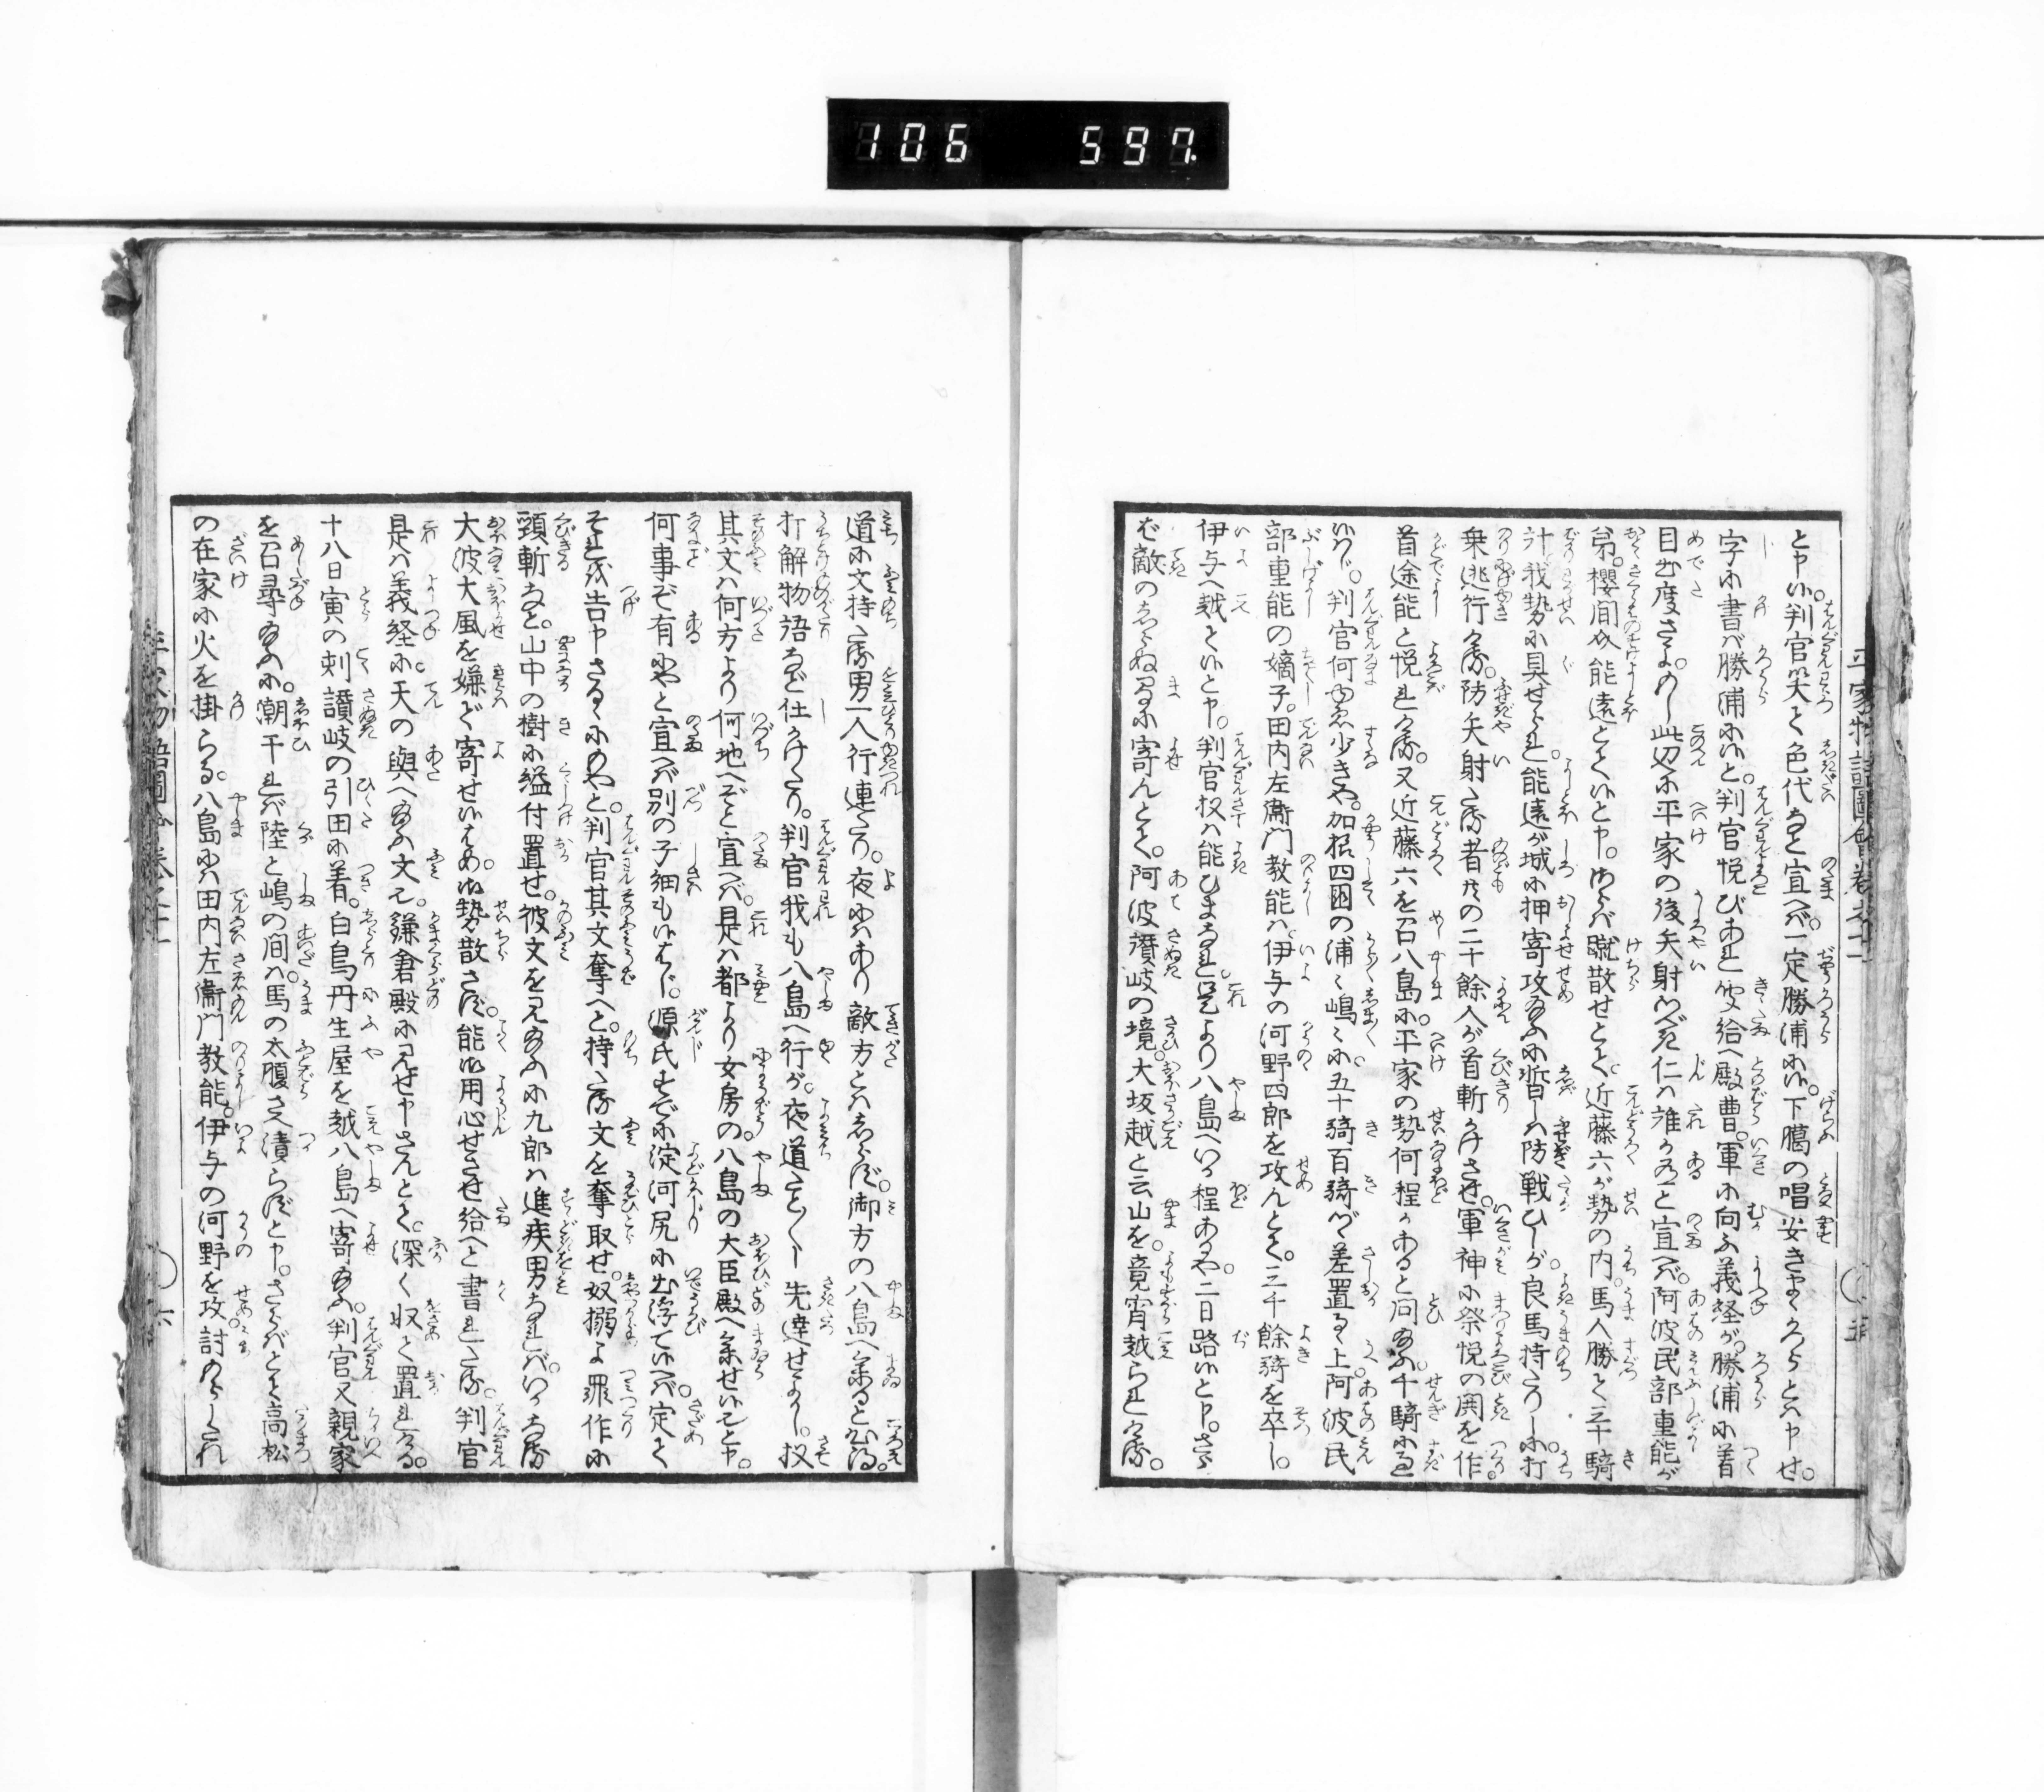 106 597.
と申い。判官笑て色代なと宣へば。一定勝浦にい。下臈の唱安きまゝかつらとハ申せ。
字に書バ勝浦にいと。判官悦びあれ聞給へ殿曹。軍に向ふ義経が。勝浦に着
目出度さよ。のし此辺に平家の後矢射つべき仁ハ誰かあると宣へば。阿波民部重能が
弟。櫻間介能遠とていと申。いざさらば蹴散せとて。近藤六が勢の内。馬人勝て三十騎
計我勢に具せられ。能遠が城に押寄攻給ふに暫しハ防戦ひしが。良馬持たりしに。打
乗逃行ける。防矢射ける者共の二十餘人が首斬かけさせ。軍神に祭悦の鬨を作。
首途能と悦れける。又近藤六を召八島に平家の勢何程かあると问給ふ。千騎には
いハじ。判官何とて少きや。加様四国の浦々嶋々に。五十騎百騎づゝ差置るゝ上阿波民
部重能の嫡子。田内左衞門教能ハ。伊与の河野四郎を攻んとて。三千餘騎を卒し。
伊与へ越ていと申。判官扨ハ能ひまなれ。是より八島へハいか程あるや。二日路いと申。さら
ば敵のしらぬ間に寄んとて。阿波讃岐の境。大坂越と云山を。竟宵越られける。
道に文持たる男一人行連たり。夜にハあり敵方とハしらず。御方の八島へ参ると心得。
打解物語など仕けり。判官我も八島へ行が。夜道たど〳〵し先達せよかし。扨
其文ハ何方より何地へぞと宣へば。是ハ都より女房の。八島の大臣殿へ参せいと申。
何事ぞ有にやと宣へば別の子細もいはじ。源氏すでに淀河尻に出浮ていへば。定て
それを告申さるゝにのやと。判官其文奪へと。持たる文を奪取せ。奴搦よ罪作に
頸斬なと。山中の樹に縊付置せ。彼文を見給ふに九郎ハ進疾男なれば。いかなる
大波大風を嫌ず寄せいはめ。御勢散さず。能御用心せさせ給へと書れたる。判官
是ハ義経に。天の與へ給ふ文也。鎌倉殿に見せ申さんとて。深く収て置れける。
十八日寅の刻讃岐の引田に着。白鳥丹生屋を越八島へ寄給ふ。判官又親家
を召尋給ふに。潮干れば陸と嶋の间ハ。馬の太腹さへ漬らずと申。さらばとて高松
の在家に火を掛らる。八島にハ田内左衞門教能。伊与の河野を攻討のらしくれ